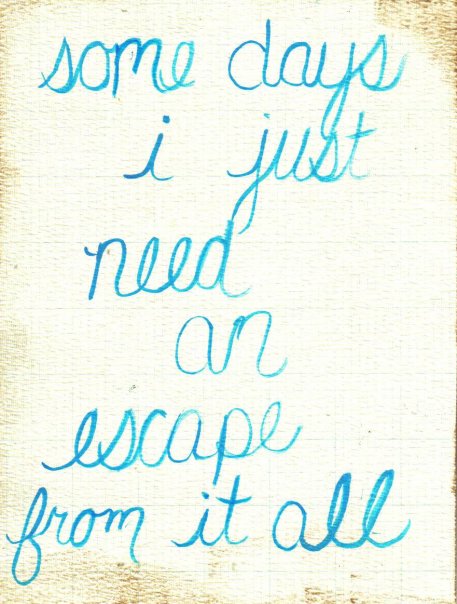 some days
i just
need
an
escape
from it all